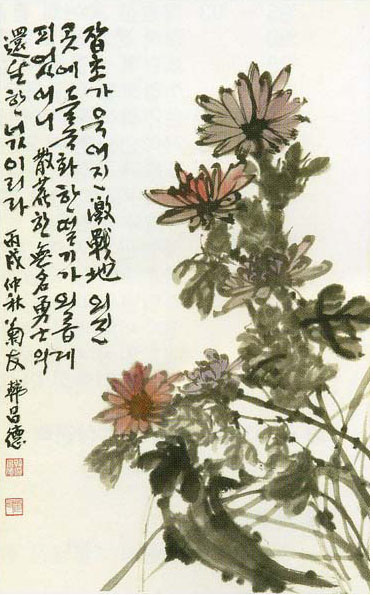 잡초가 욱어진 激戰地 외진
곳에 들국화 한떨기가 외롭게
散花한 無名勇士의
還生한 넋이리라 丙戌 仲秋 菊友 韓昌德